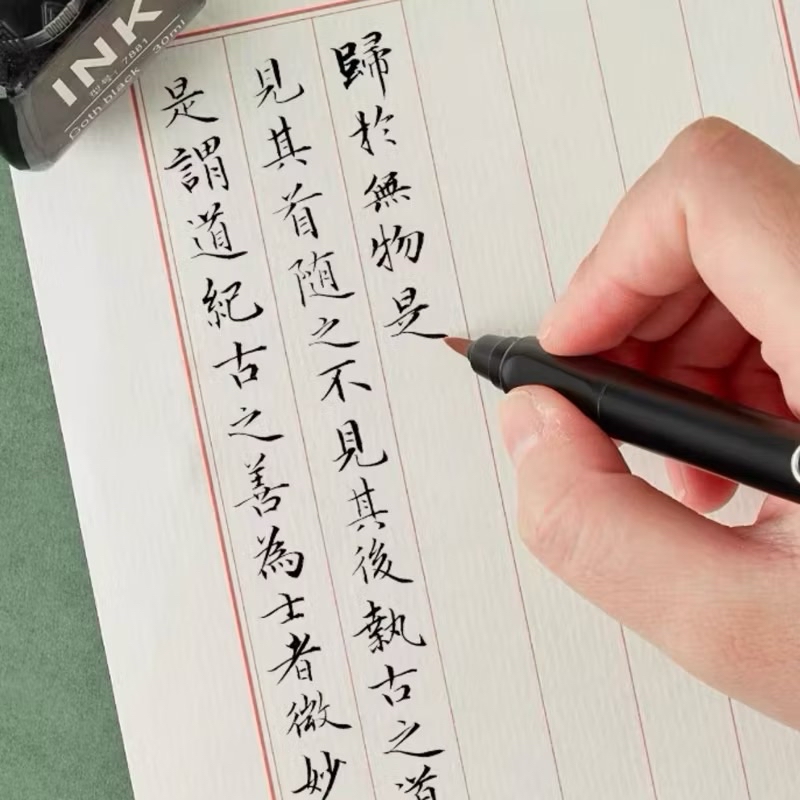 歸於無物是
見其首隨之不見其後執古之道
是謂道紀古之善為士者微妙
INK
型号: 7881
Goth black 30ml